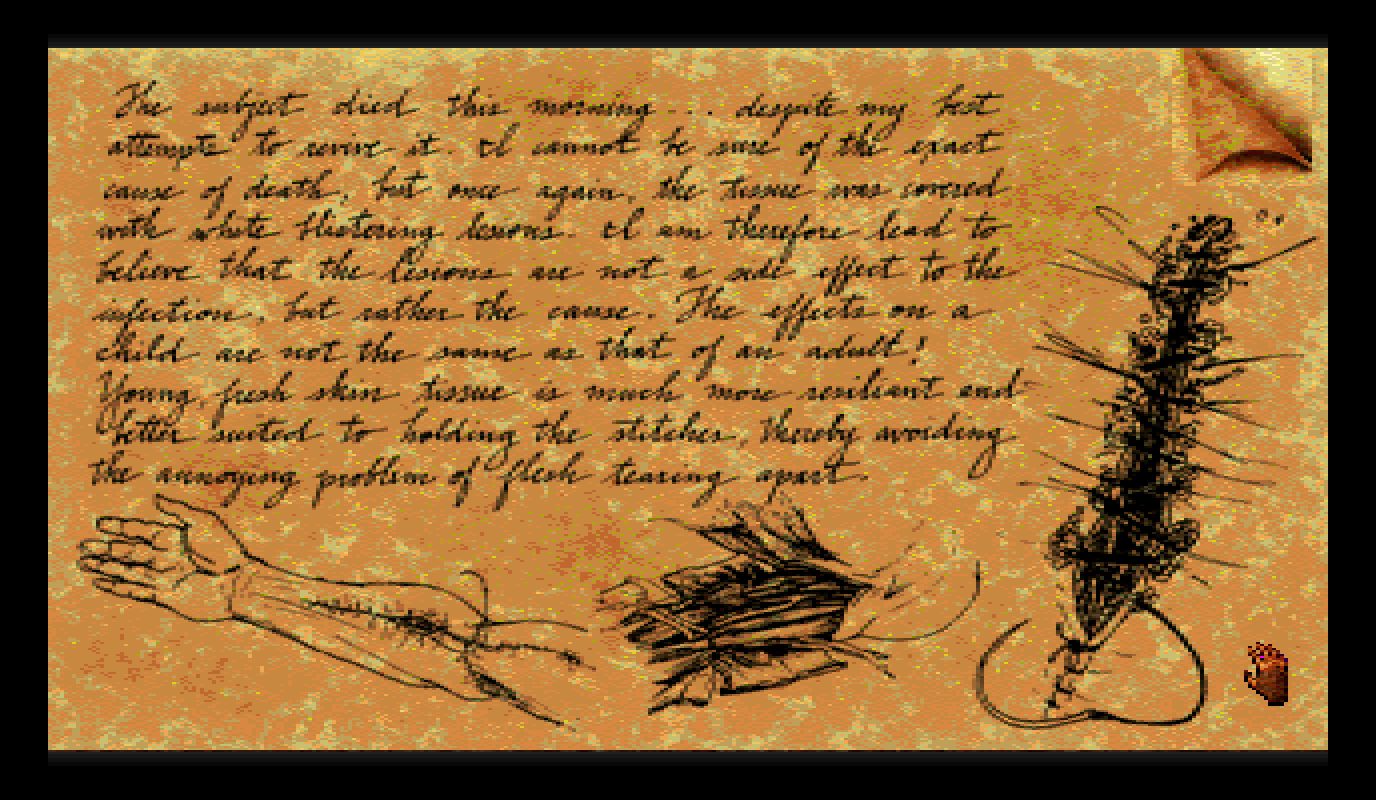 The subject died this morning... despite my best
attempts to revive it. I cannot be sure of the exact
cause of death, but once again, the tissue was covered
with white blistering lesions. I am therefore lead to
believe that the lesions are not a side effect to the
infection, but rather the cause. The effects on a
child are not the same as that of an adult!
Young, fresh skin tissue is much more resiliant and
better suited to holding the stitches, thereby avoiding
the annoying problem of flesh tearing apart.